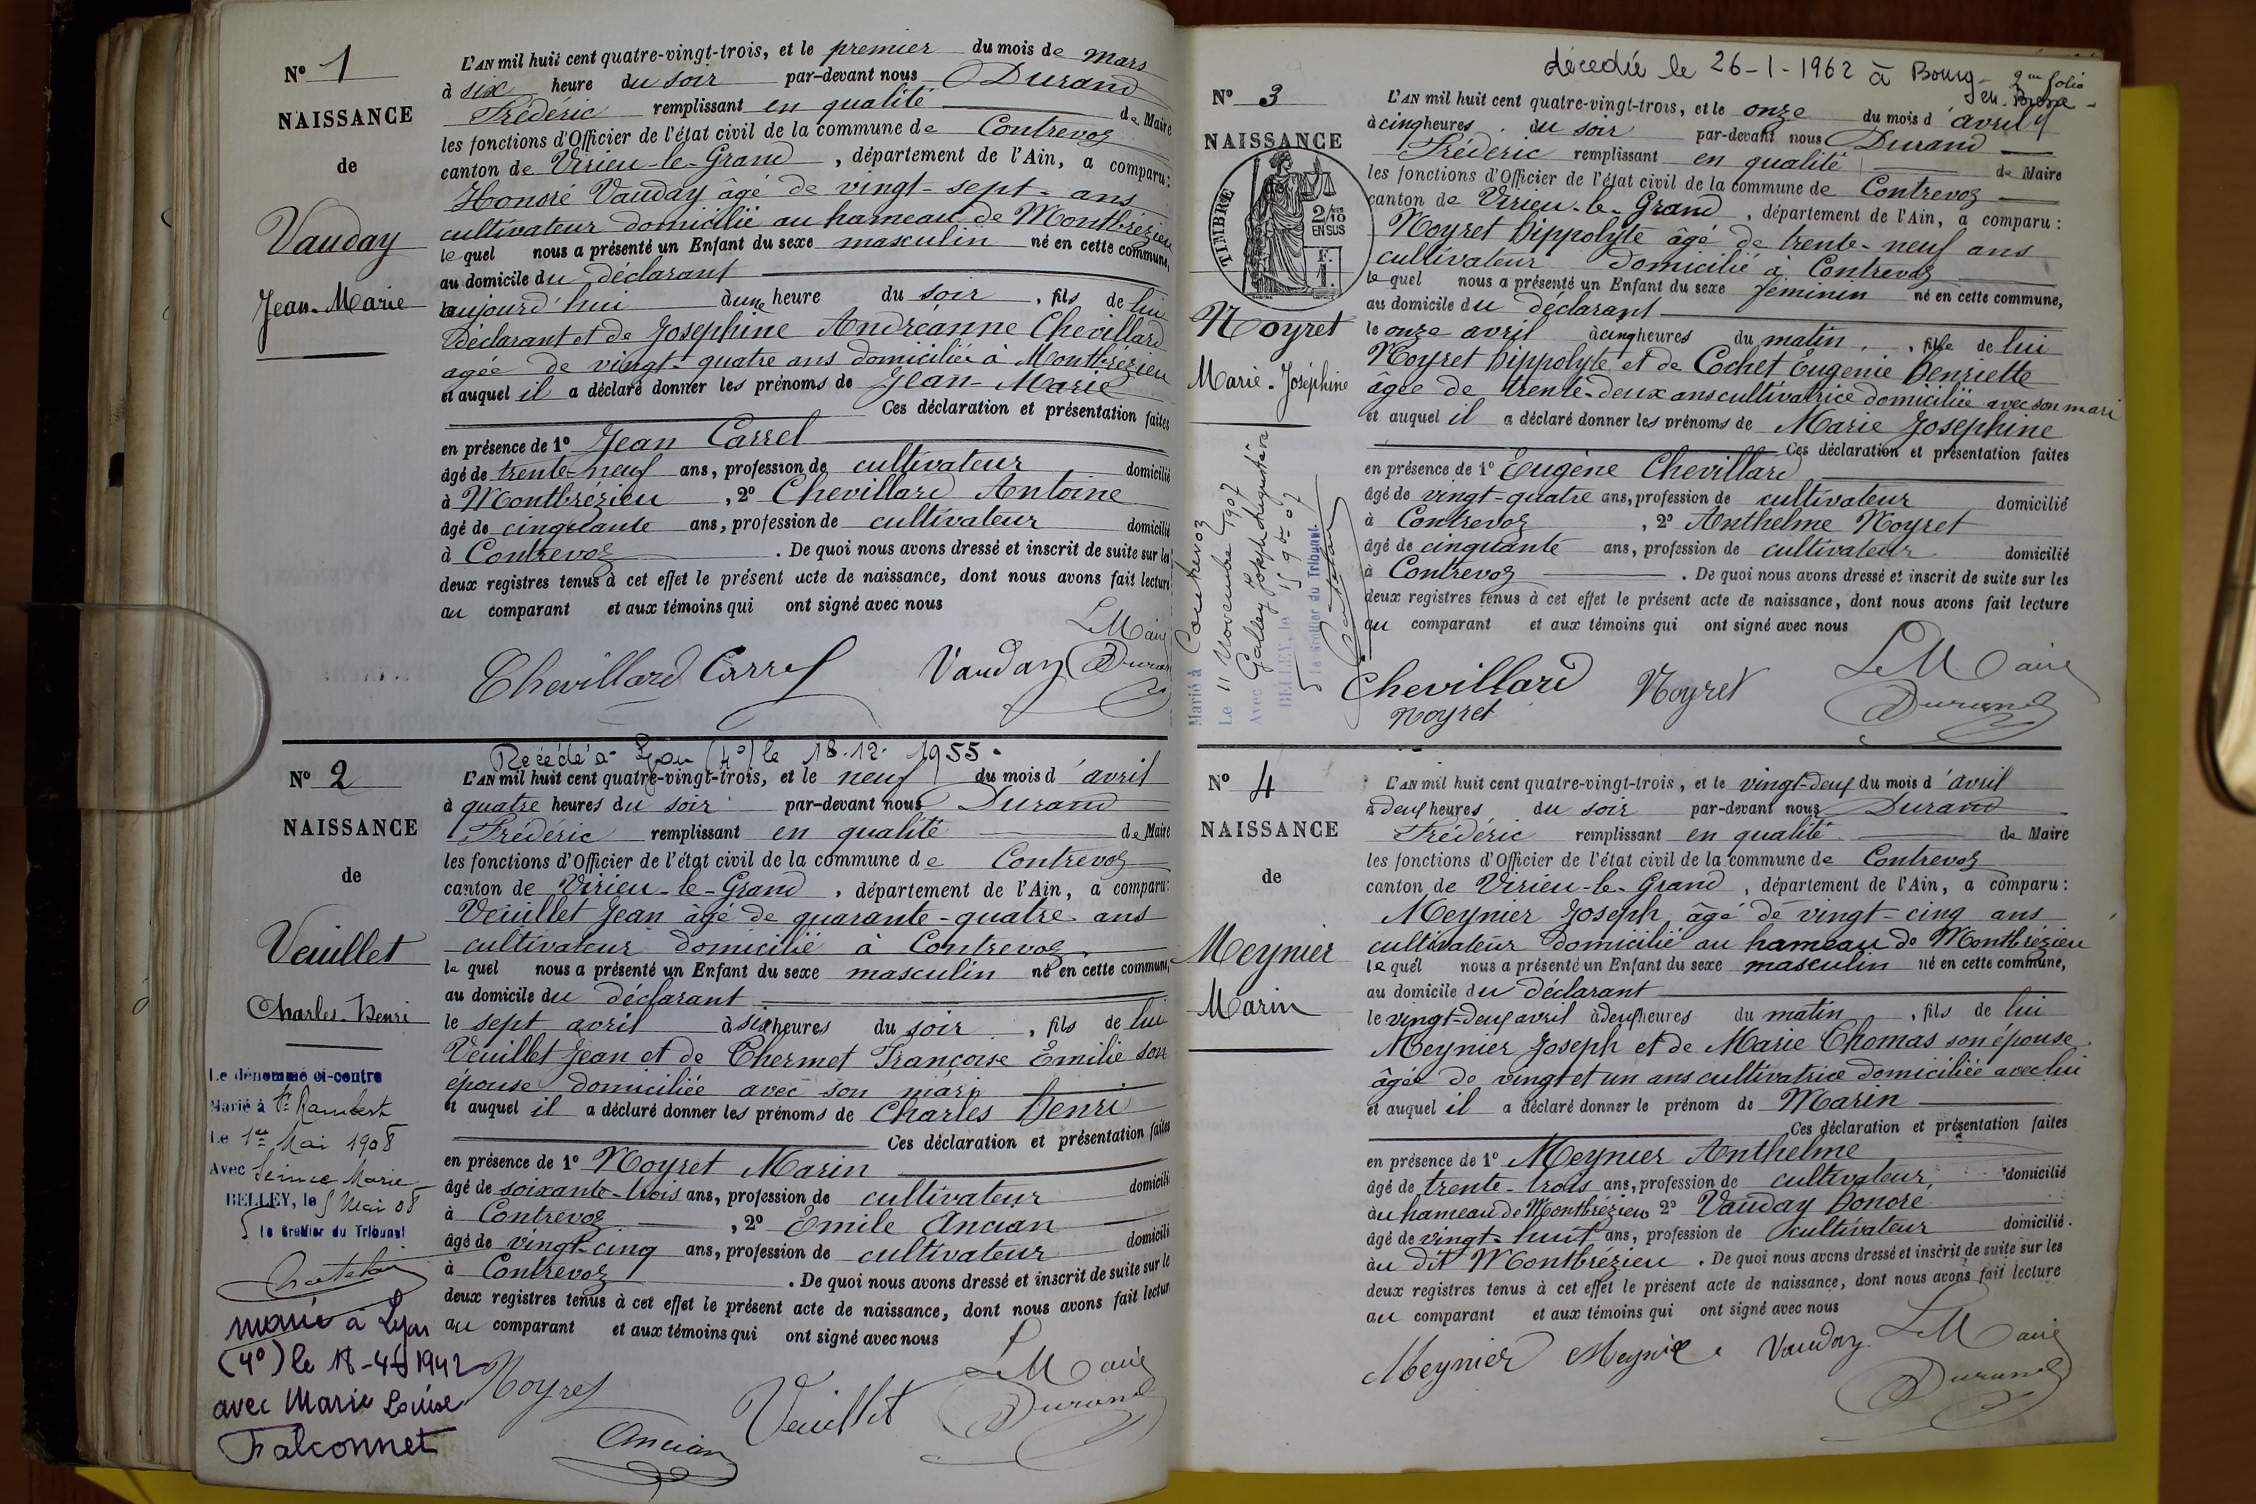 N° 1
NAISSANCE
de
Vauday
Jean-Marie
L'AN mil huit cent quatre-vingt-trois, et le premier du mois de mars
à six heure du soir par-devant nous Durand
Frédéric remplissant en qualité de Maire
les fonctions d'Officier de l'état civil de la commune de Contrevoz
canton de Virieu-le-Grand, département de l'Ain, a comparu:
Honoré Vauday âgé de vingt-sept-ans
cultivateur domicilié au hameau de Montbrézieu
lequel nous a présenté un Enfant du sexe masculin né en cette commune,
au domicile du déclarant
aujourd'hui à une heure du soir, fils de lui
déclarant et de Josephine Andréanne Chevillard
agée de vingt-quatre ans domiciliée à Montbrézieu
et auquel il a déclaré donner les prénoms de Jean-Marie
Ces déclaration et présentation faites
en présence de 1° Jean Carrel
âgé de trente-neuf ans, profession de cultivateur domicilié
à Montbrézieu, 2° Chevillard Antoine
âgé de cinquante ans, profession de cultivateur domicilié
à Contrevoz. De quoi nous avons dressé et inscrit de suite sur les
deux registres tenus à cet effet le présent acte de naissance, dont nous avons fait lecture
au comparant et aux témoins qui ont signé avec nous
Le Maire
Chevillard Carrel Vauday Durand
Décédé à Lyon (4°) le 18-12-1955.
N° 2
NAISSANCE
de
Veuillet
Charles-Henri
Le dénommé ci-contre
Marié à St Rambert
Le 1er Mai 1908
Avec Marie
BELLEY, le 5 Mai 08
le Greffier du Tribunal
marié à Lyon
(4°) le 18-4-1942
avec Marie Louise
Falconnet
L'AN mil huit cent quatre-vingt-trois, et le neuf du mois d'avril
à quatre heures du soir par-devant nous Durand
Frédéric remplissant en qualité de Maire
les fonctions d'Officier de l'état civil de la commune de Contrevoz
canton de Virieu-le-Grand, département de l'Ain, a comparu:
Veuillet Jean âgé de quarante-quatre ans
cultivateur domicilié à Contrevoz
lequel nous a présenté un Enfant du sexe masculin né en cette commune,
au domicile du déclarant
le sept avril à six heures du soir, fils de lui
Veuillet Jean et de Chermet Françoise Emilie son
épouse domiciliée avec son mari
et auquel il a déclaré donner les prénoms de Charles Henri
Ces déclaration et présentation faites
en présence de 1° Noyret Marin
âgé de soixante-trois ans, profession de cultivateur domicilié
à Contrevoz, 2° Emile Ancian
âgé de vingt-cinq ans, profession de cultivateur domicilié
à Contrevoz. De quoi nous avons dressé et inscrit de suite sur le
deux registres tenus à cet effet le présent acte de naissance, dont nous avons fait lecture
au comparant et aux témoins qui ont signé avec nous
Le Maire
Noyret Ancian Veuillet Durand
décédée le 26-1-1962 à Bourg-
en-Bresse-
2me folio
N° 3
NAISSANCE
de
TIMBRE
2/10 EN SUS
F. 1.
Noyret
Marie-Joséphine
Marié à Contrevoz
Le 11 Novembre 1907
Avec Gallay Joseph
BELLEY, le 15 9bre 07
le Greffier du Tribunal.
L'AN mil huit cent quatre-vingt-trois, et le onze du mois d'avril
à cinq heures du soir par-devant nous Durand
Fréderic remplissant en qualité de Maire
les fonctions d'Officier de l'état civil de la commune de Contrevoz
canton de Virieu-le-Grand, département de l'Ain, a comparu:
Noyret Hippolyte âgé de trente-neuf ans
cultivateur domicilié à Contrevoz
lequel nous a présenté un Enfant du sexe féminin né en cette commune,
au domicile du déclarant
le onze avril à cinq heures du matin, fille de lui
Noyret Hippolyte et de Cochet Eugenie Henriette
âgée de trente-deux ans cultivatrice domiciliée avec son mari
et auquel il a déclaré donner les prénoms de Marie Joséphine
Ces déclaration et présentation faites
en présence de 1° Eugène Chevillard
âgé de vingt-quatre ans, profession de cultivateur domicilié
à Contrevoz, 2° Anthelme Noyret
âgé de cinquante ans, profession de cultivateur domicilié
à Contrevoz. De quoi nous avons dressé et inscrit de suite sur les
deux registres tenus à cet effet le présent acte de naissance, dont nous avons fait lecture
au comparant et aux témoins qui ont signé avec nous
Chevillard Noyret Le Maire
Noyret Durand
N° 4
NAISSANCE
de
Meynier
Marin
L'AN mil huit cent quatre-vingt-trois, et le vingt-deux du mois d'avril
à deux heures du soir par-devant nous Durand
Frédéric remplissant en qualité de Maire
les fonctions d'Officier de l'état civil de la commune de Contrevoz
canton de Virieu-le-Grand, département de l'Ain, a comparu:
Meynier Joseph, âgé de vingt-cinq ans
cultivateur domicilié au hameau de Montbrézieu
lequel nous a présenté un Enfant du sexe masculin né en cette commune,
au domicile du déclarant
le vingt-deux avril à deux heures du matin, fils de lui
Meynier Joseph et de Marie Thomas son épouse
âgée de vingt et un ans cultivatrice domiciliée avec lui
et auquel il a déclaré donner le prénom de Marin
Ces déclaration et présentation faites
en présence de 1° Meynier Anthelme
âgé de trente-trois ans, profession de cultivateur, domicilié
au hameau de Montbrézieu 2° Vauday Honoré
âgé de vingt-huit ans, profession de cultivateur domicilié.
au dit Montbrézieu. De quoi nous avons dressé et inscrit de suite sur les
deux registres tenus à cet effet le présent acte de naissance, dont nous avons fait lecture
au comparant et aux témoins qui ont signé avec nous
Le Maire
Meynier Meynier Vauday Durand